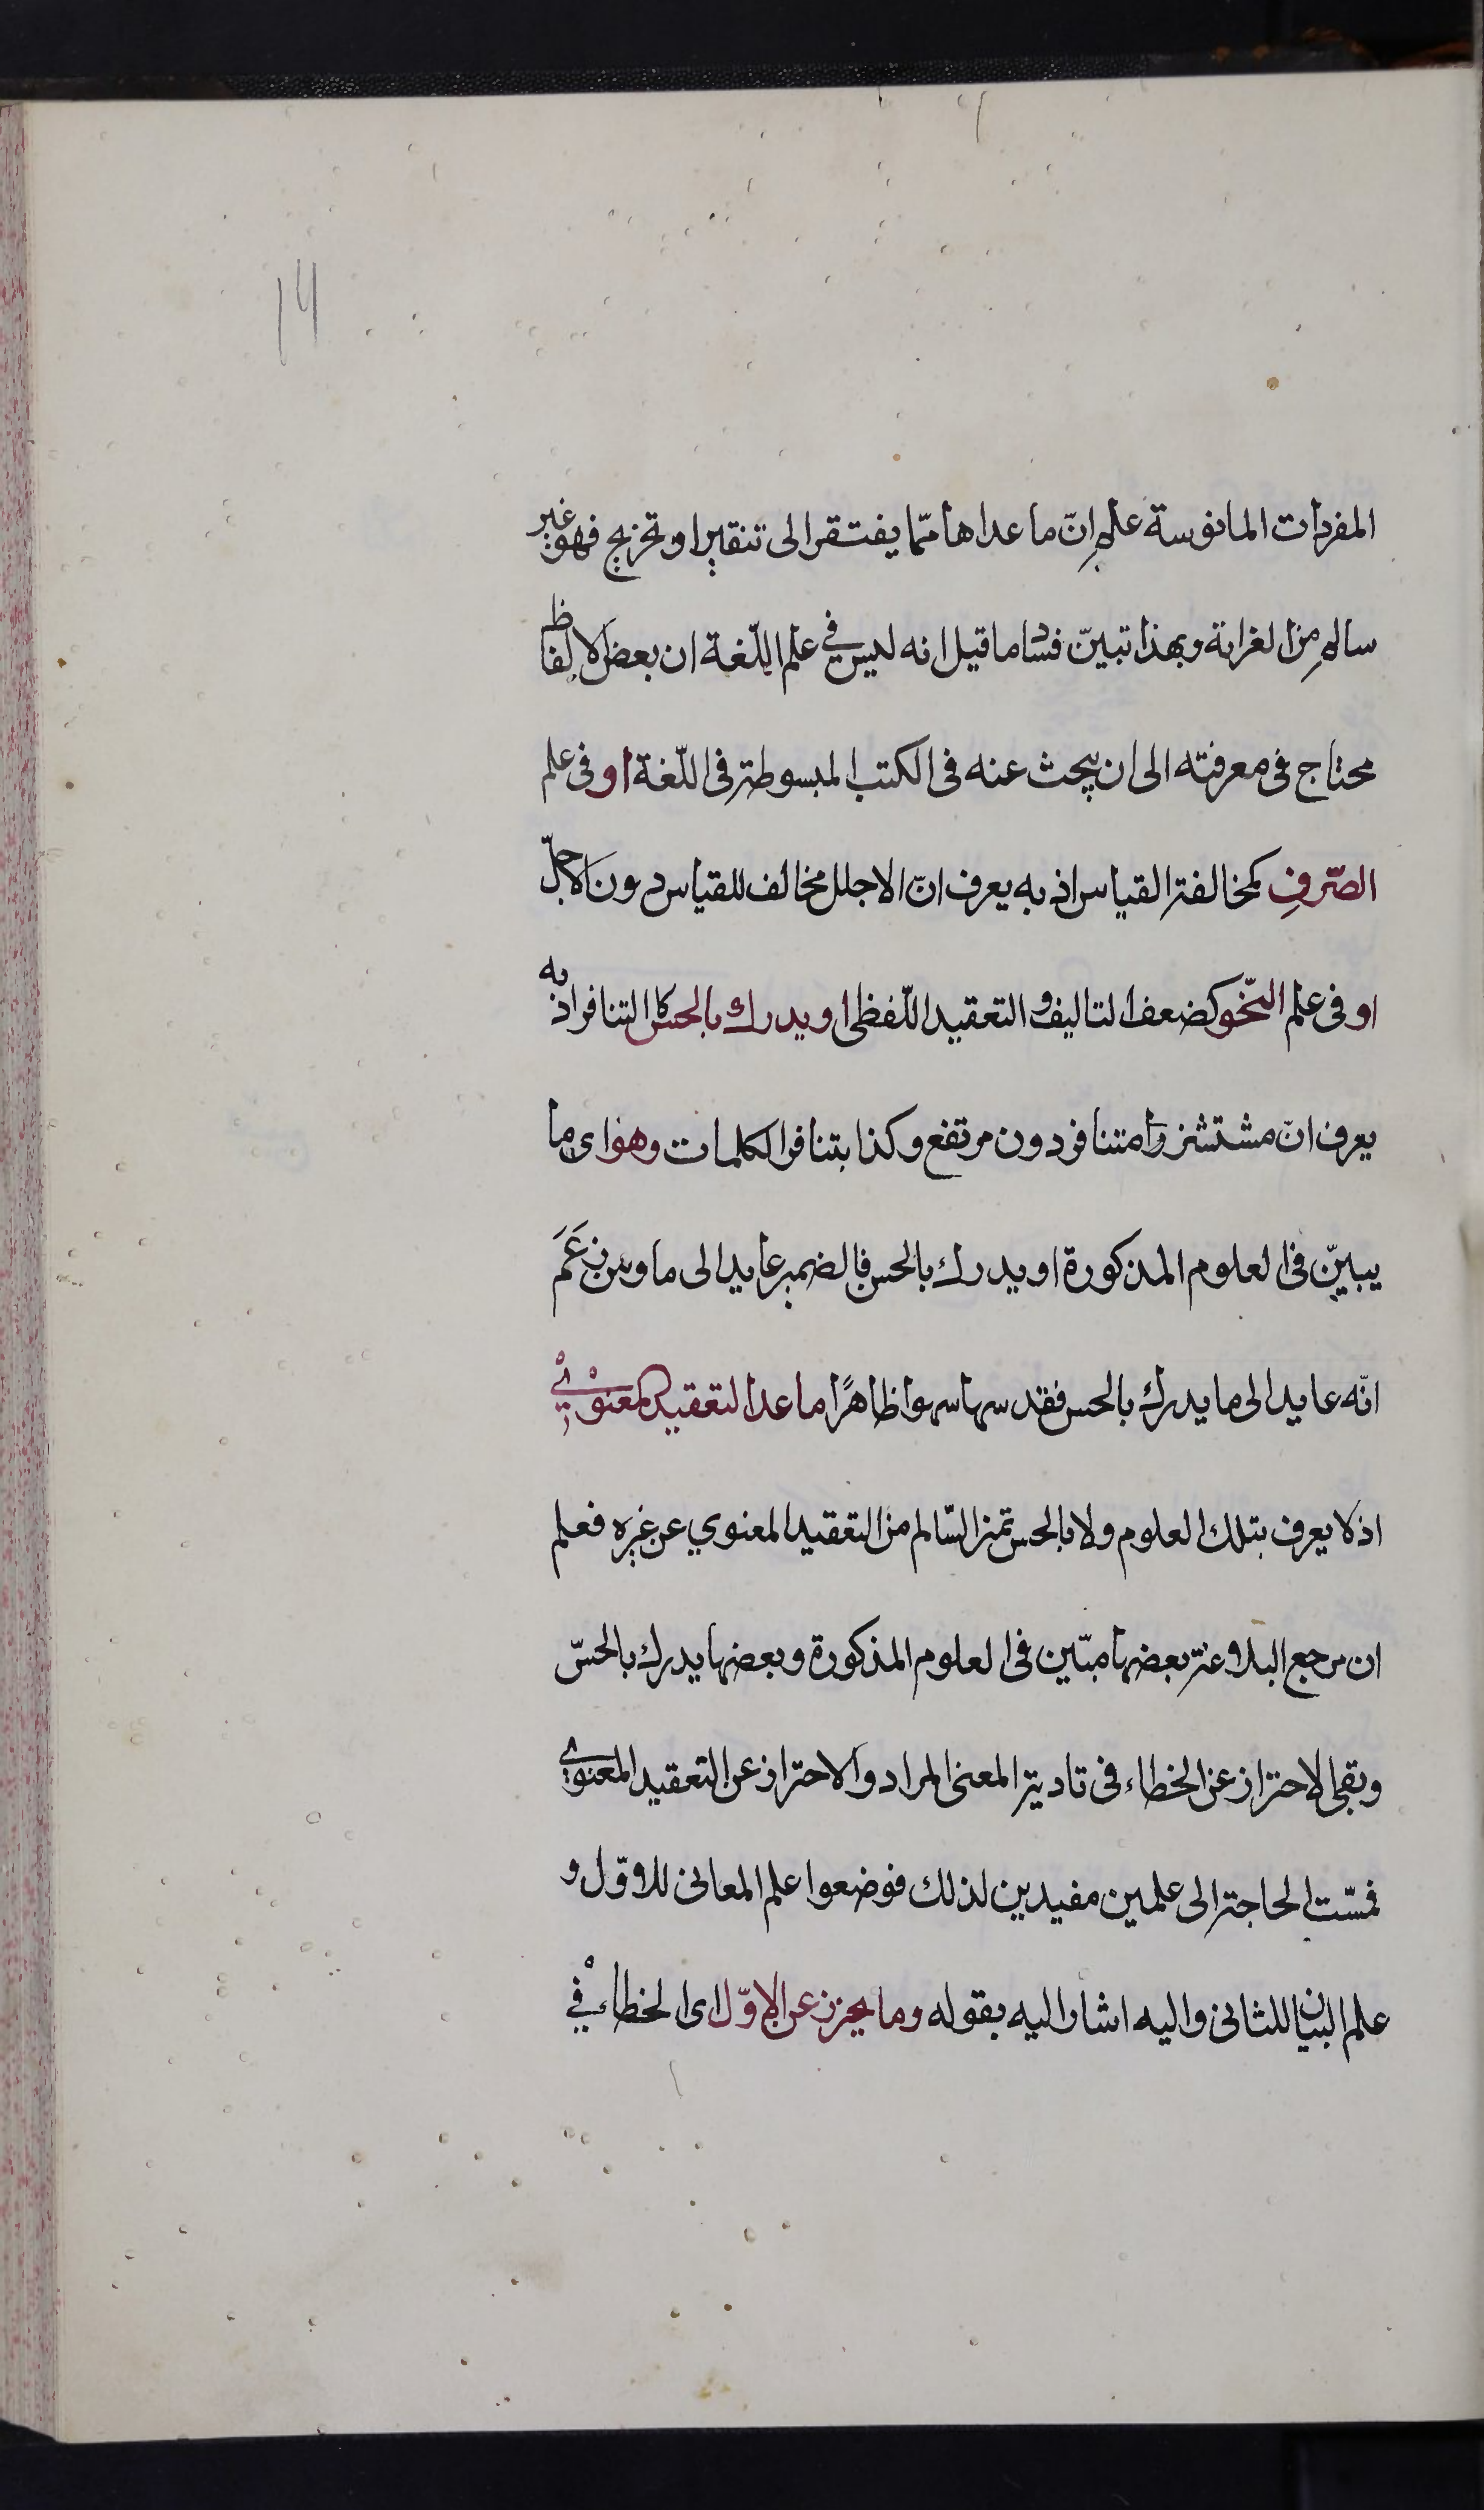 14
المفردات المانوسة علم انّ ما عداها ممّا يفتقر الى تنقير او تخريج فهو غير
سالم من الغرابة وبهذا تبيّن فساد ما قيل انه ليس في علم اللّغة ان بعض الالفاظ
محتاج فى معرفته الى ان يبحث عنه فى الكتب المبسوطة فى اللّغة او فى علم
الصّرفِ كمخالفة القياس اذ به يعرف انّ الاجلل مخالف للقياس دون الاجلّ
او فى علم النّحو كضعف التاليف و التعقيد اللّفظى او يدرك بالحس كالتنافر اذ به
يعرف انّ مستشزرا متنافر دون مرتفع وكذا بتنافر الكلمات وهو اى ما
يبيّن فى العلوم المذكورة او يدرك بالحس فالضمير عايد الى ما ومن زَعَمَ
انّه عايد الى ما يدرك بالحس فقد سها سهوا ظاهرًا ما عدا التعقيد المعنوي
اذ لا يعرف بتلك العلوم ولا بالحس تميز السّالم من التعقيد المعنوي عن غيره فعلم
ان مرجع البلاغة بعضها مبيّن فى العلوم المذكورة وبعضها يدرك بالحسّ
وبقى الاحتراز عن الخطاء فى تادية المعنى المراد والاحتراز عن التعقيد المعنوي
فمسّت الحاجة الى علمين مفيدين لذلك فوضعوا علم المعانى للاوّل و
علم البيان للثانى واليه اشار اليه بقوله وما يحترز عن الاوّل اى الخطاء في